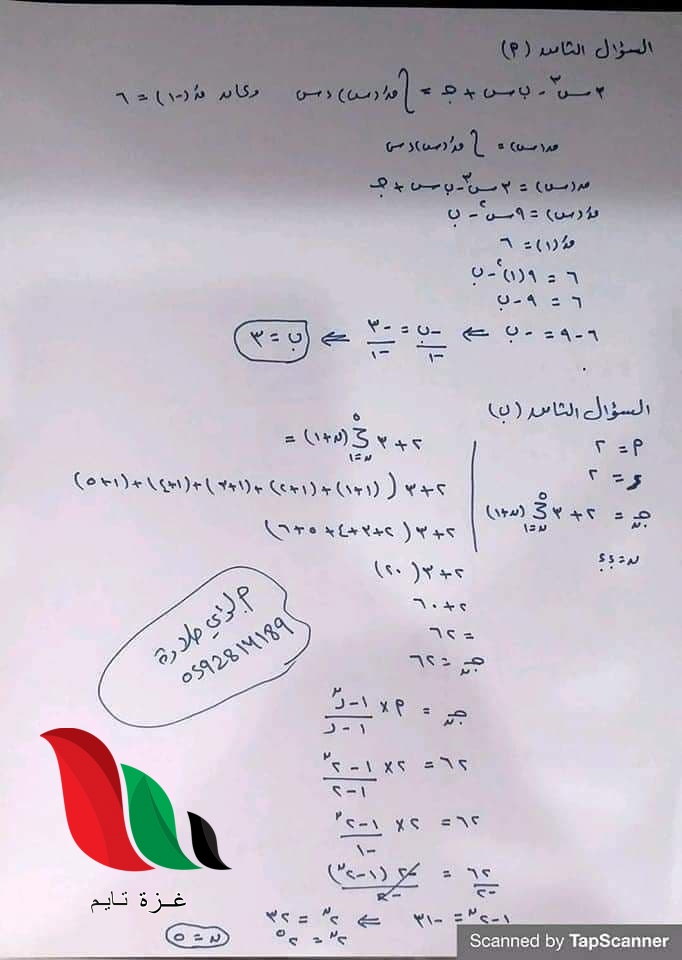 السؤال الثامن (م)
٣س٣ - ب س + جـ = ∫ قَ(س) دس وكان قَ(-١) = ٦
ق(س) = ∫ قَ(س) دس
ق(س) = ٣س٣ - ب س + جـ
قَ(س) = ٩س٢ - ب
قَ(١) = ٦
٦ = ٩(١)٢ - ب
٦ = ٩ - ب
٦ - ٩ = - ب ⇐ -ب/-١ = -٣/-١ ⇐ ب = ٣
السؤال الثامن (ب)
م = ٢
ر = ٢
جـن = ٢ + ٣ ∑ (ن+١) ن=١ ٥
ن = ؟؟
٢ + ٣ ∑ (ن+١) = ن=١ ٥
٢ + ٣ ((١+١) + (٢+١) + (٣+١) + (٤+١) + (٥+١))
٢ + ٣ (٢ + ٣ + ٤ + ٥ + ٦)
٢ + ٣ (٢٠)
٢ + ٦٠
= ٦٢
جـن = ٦٢
جـن = م × ١ - رن / ١ - ر
٦٢ = ٢ × ١ - ٢ن / ١ - ٢
٦٢ = ٢ × ١ - ٢ن / -١
٦٢/-٢ = -٢ (١ - ٢ن) / -٢
١ - ٢ن = -٣١ ⇐ ٢ن = ٣٢
٢ن = ٢٥
ن = ٥
0592814189
غزة تايم
Scanned by TapScanner